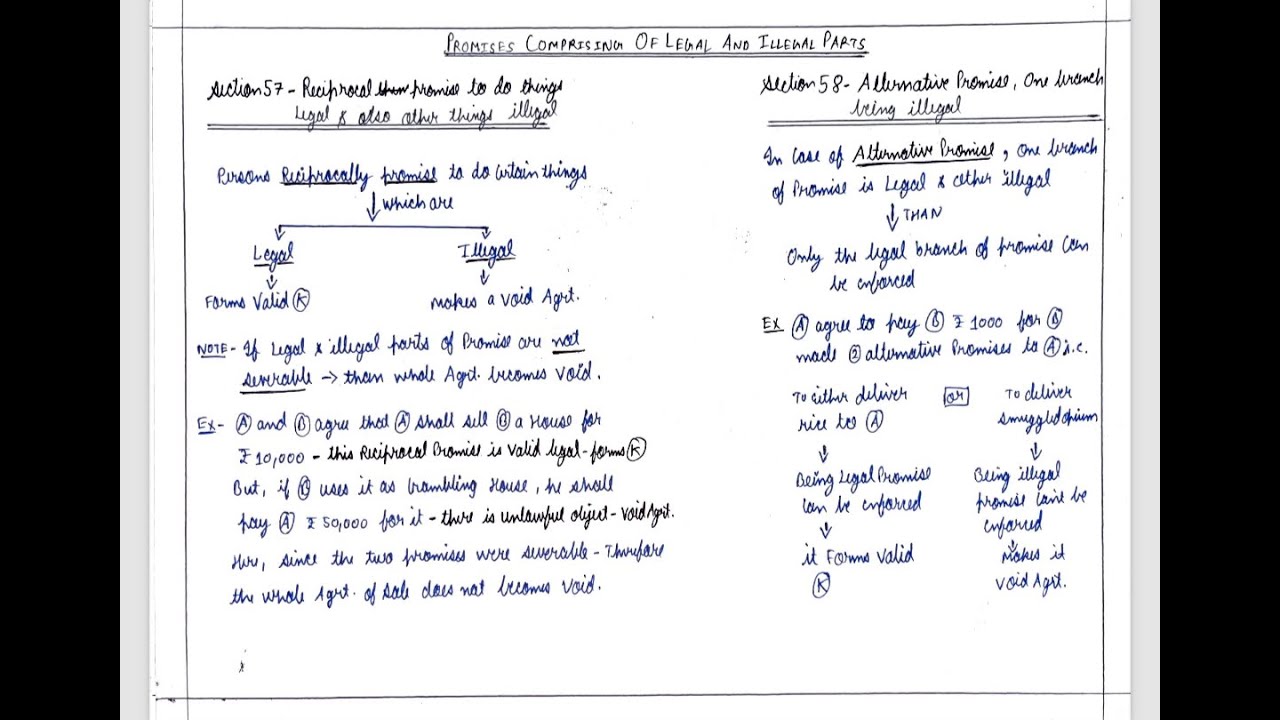 PROMISES COMPRISING OF LEGAL AND ILLEGAL PARTS
Section 57 - Reciprocal promise to do things
Legal & also other things illegal
Persons Reciprocally promise to do certain things
which are
Legal
Illegal
Forms Valid K
makes a void Agrt.
NOTE - If Legal & illegal parts of Promise are not
severable → than whole Agrt. becomes void.
Ex - A and B agree that A shall sell B a House for
₹ 10,000 - this Reciprocal Promise is valid legal - forms K
But, if B uses it as Gambling House, he shall
pay A ₹ 50,000 for it - there is unlawful object - void Agrt.
Here, since the two promises were severable - Therefore
the whole Agrt. of sale does not becomes void.
Section 58 - Alternative Promise, One branch
being illegal
In case of Alternative Promise, one branch
of Promise is Legal & other illegal
THAN
Only the legal branch of promise can
be enforced
EX A agree to pay B ₹ 1000 for B
made 2 alternative Promises to A i.e.
To either deliver
rice to A
or
To deliver
smuggled opium
Being Legal Promise
can be enforced
Being illegal
promise can't be
enforced
it Forms valid
K
Makes it
void Agrt.